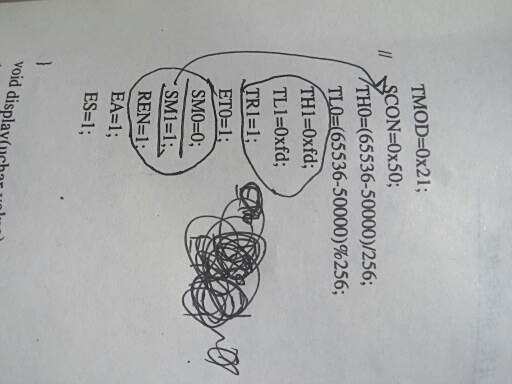 TMOD=0x21;
// SCON=0x50;
TH0=(65536-50000)/256;
TL0=(65536-50000)%256;
TH1=0xfd;
TL1=0xfd;
TR1=1;
ET0=1;
SM0=0;
SM1=1;
REN=1;
EA=1;
ES=1;
}
void display(uchar value)